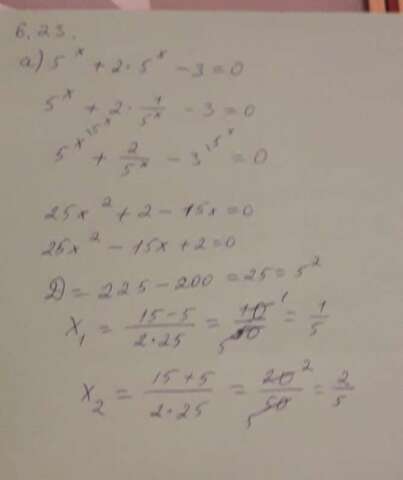 6.23.
а) 5^x + 2 · 5^x − 3 = 0
5^x + 2 · 1/5^x − 3 = 0
5^x ^{·5^x} + 2/5^x − 3 ^{·5^x} = 0
25x^2 + 2 − 15x = 0
25x^2 − 15x + 2 = 0
D = 225 − 200 = 25 = 5^2
x_1 = (15 − 5)/(2·25) = 10/50 = 1/5
x_2 = (15 + 5)/(2·25) = 20/50 = 2/5